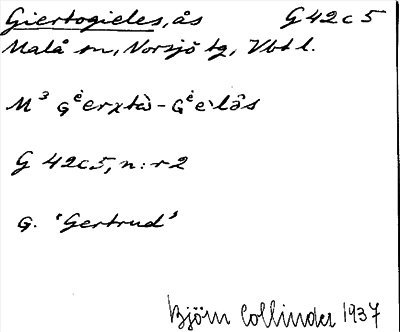 Giertogieles, ås G 42 c 5
Malå sn, Norsjö tg, Vbtl.
M³ Gėerxtà - Gėelås
G 42c5, n:r 2
G. 'Gertrud'
Björn Collinder 1937